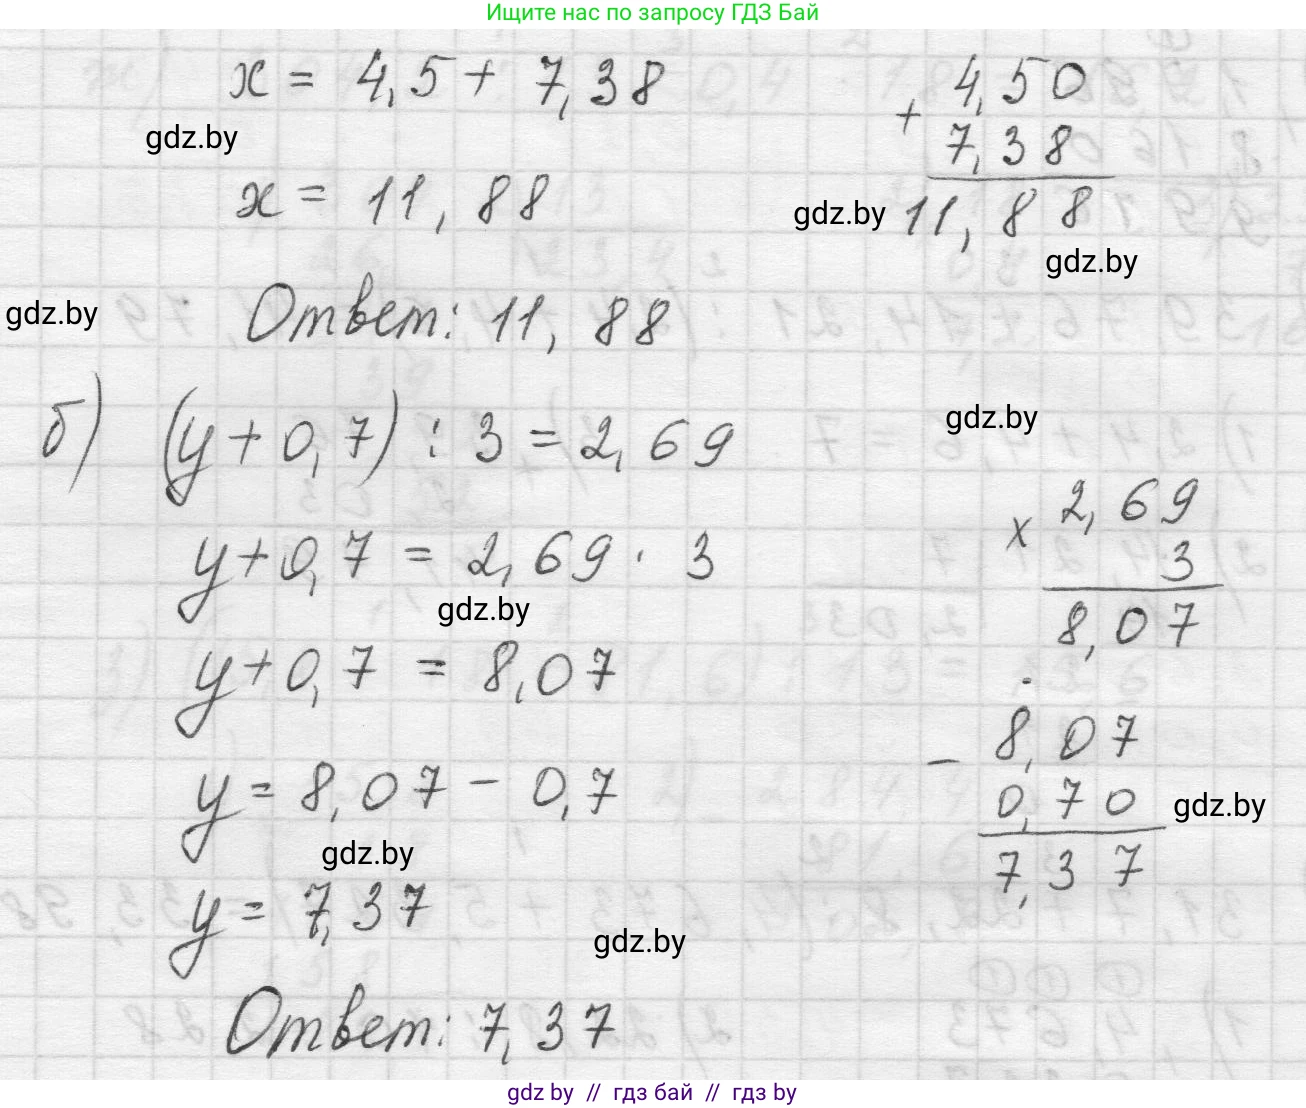 Ищите нас по запросу ГДЗ Бай
x = 4,5 + 7,38
4,50
+
7,38
11,88
gdz.by
x = 11,88
gdz.by
gdz.by
gdz.by
Ответ: 11,88
б) (y + 0,7) : 3 = 2,69
gdz.by
y + 0,7 = 2,69 · 3
x 2,69
3
8,07
gdz.by
y + 0,7 = 8,07
y = 8,07 - 0,7
- 8,07
0,70
7,37
gdz.by
gdz.by
y = 7,37
gdz.by
Ответ: 7,37
gdz by // гдз бай // гдз by